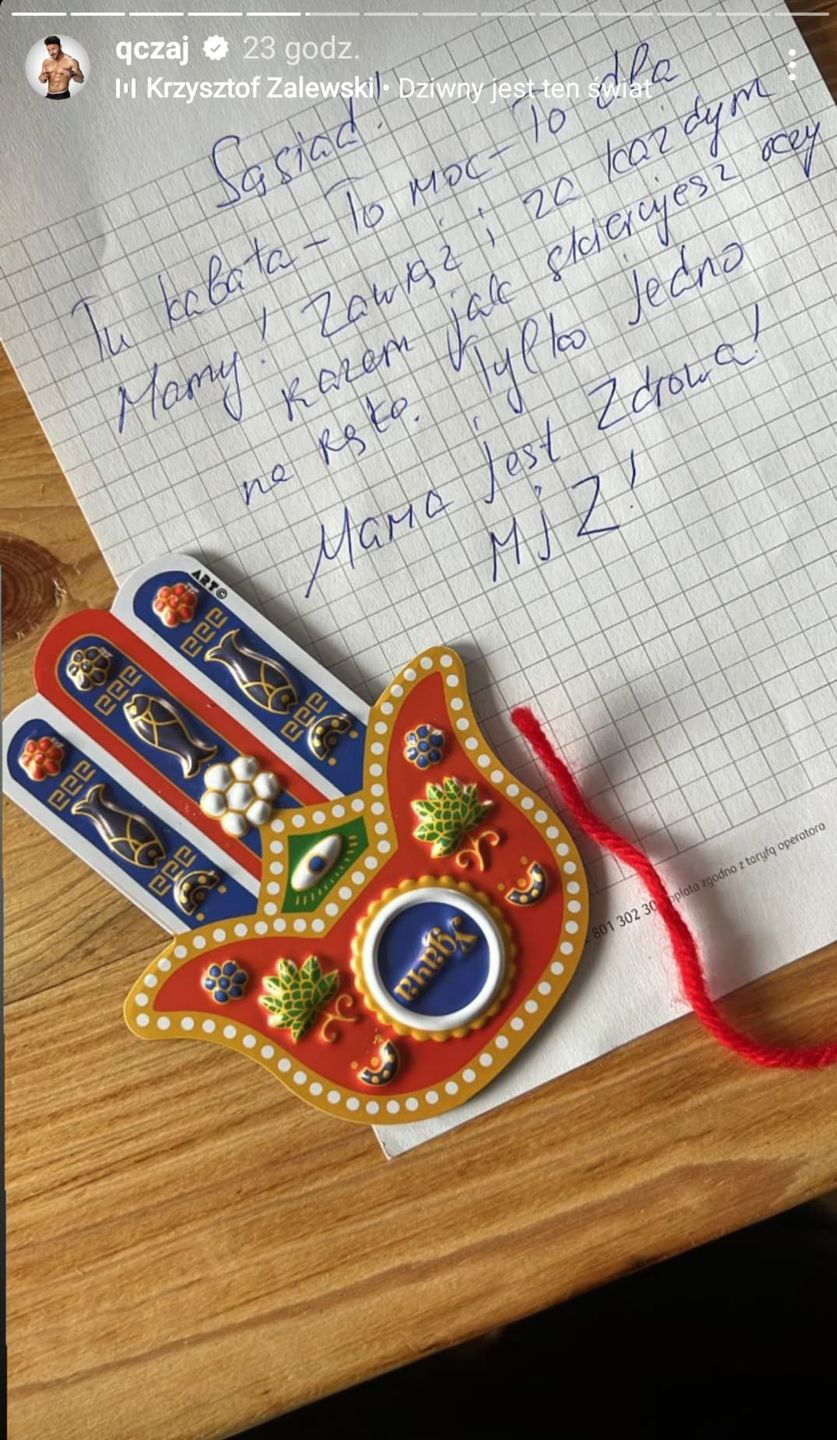 qczaj 23 godz.
Krzysztof Zalewski • Dziwny jest ten świat
Sąsiad!
Tu kabała - To moc - To dla
Mamy! Zawiąż i za każdym
razem jak skierujesz oczy
na rękę. Tylko jedno
Mama jest Zdrowa!
MjZ!
ART©
Удача
801 302 30 opłata zgodna z taryfą operatora